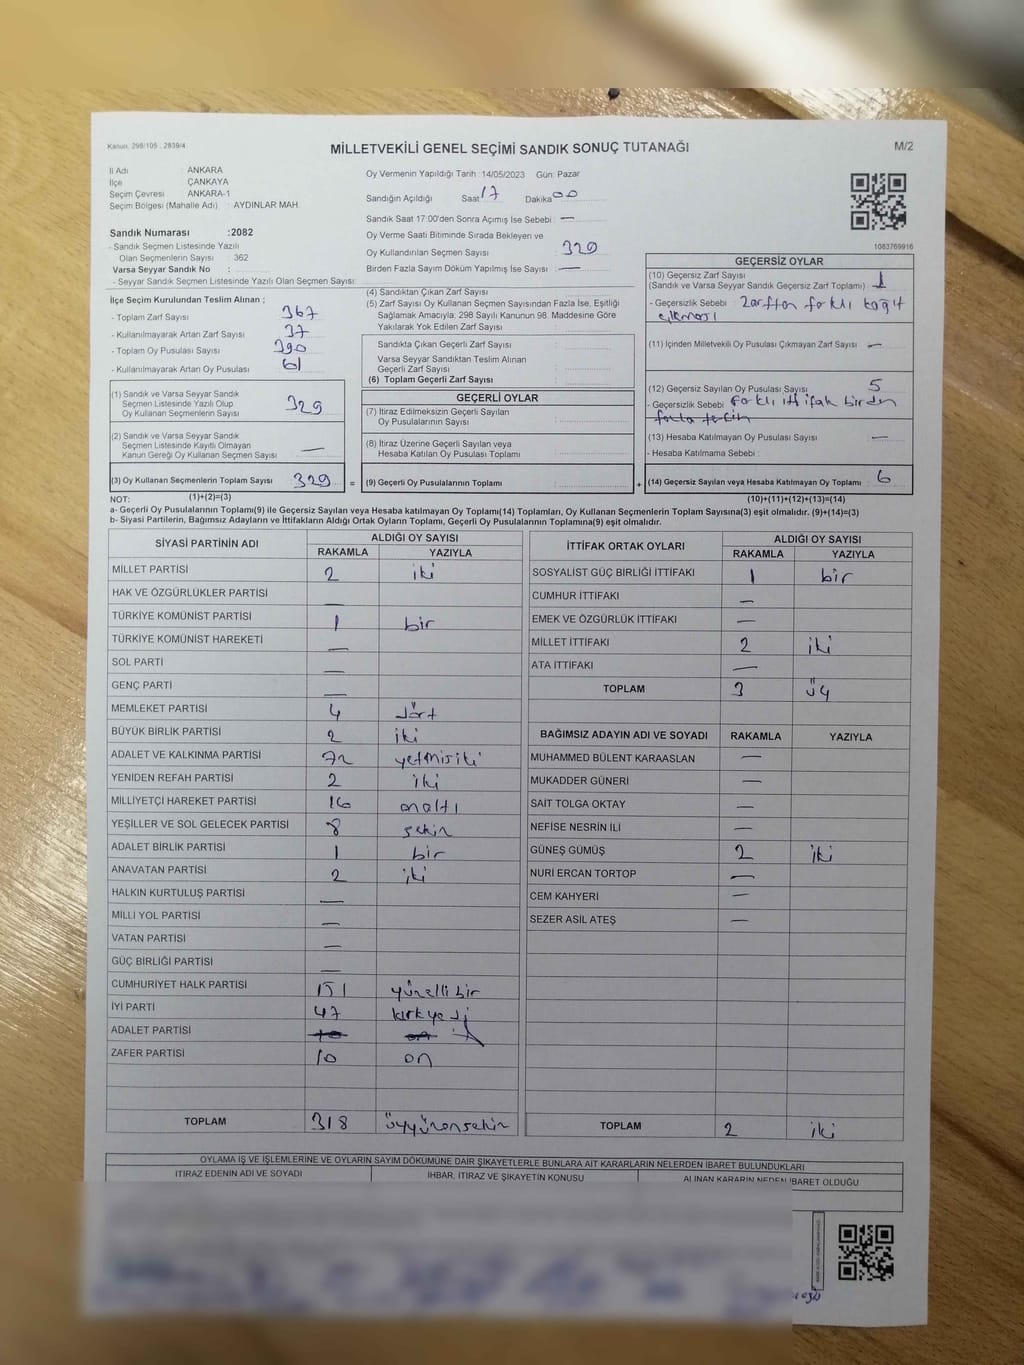 Kanun, 298/105 , 2839/4
MİLLETVEKİLİ GENEL SEÇİMİ SANDIK SONUÇ TUTANAĞI
M/2
İl Adı : ANKARA
İlçe ÇANKAYA
Seçim Çevresi ANKARA-1
Seçim Bölgesi (Mahalle Adı) : AYDINLAR MAH.
Sandık Numarası :2082
- Sandık Seçmen Listesinde Yazılı
Olan Seçmenlerin Sayısı : 362
Varsa Seyyar Sandık No :
- Seyyar Sandık Seçmen Listesinde Yazılı Olan Seçmen Sayısı:
Oy Vermenin Yapıldığı Tarih : 14/05/2023 Gün: Pazar
Sandığın Açıldığı Saat 17 Dakika 00
Sandık Saat 17:00'den Sonra Açımış İse Sebebi : —
Oy Verme Saati Bitiminde Sırada Bekleyen ve
Oy Kullandırılan Seçmen Sayısı : 329
Birden Fazla Sayım Döküm Yapılmış İse Sayısı : —
1083769916
İlçe Seçim Kurulundan Teslim Alınan ;
- Toplam Zarf Sayısı : 367
- Kullanılmayarak Artan Zarf Sayısı : 37
- Toplam Oy Pusulası Sayısı : 390
- Kullanılmayarak Artan Oy Pusulası : 61
(1) Sandık ve Varsa Seyyar Sandık
Seçmen Listesinde Yazılı Olup
Oy Kullanan Seçmenlerin Sayısı : 329
(2) Sandık ve Varsa Seyyar Sandık
Seçmen Listesinde Kayıtlı Olmayan
Kanun Gereği Oy Kullanan Seçmen Sayısı : —
(3) Oy Kullanan Seçmenlerin Toplam Sayısı : 329
(4) Sandıktan Çıkan Zarf Sayısı
(5) Zarf Sayısı Oy Kullanan Seçmen Sayısından Fazla İse, Eşitliği
Sağlamak Amacıyla; 298 Sayılı Kanunun 98. Maddesine Göre
Yakılarak Yok Edilen Zarf Sayısı :
Sandıkta Çıkan Geçerli Zarf Sayısı :
Varsa Seyyar Sandıktan Teslim Alınan
Geçerli Zarf Sayısı :
(6) Toplam Geçerli Zarf Sayısı :
GEÇERLİ OYLAR
(7) İtiraz Edilmeksizin Geçerli Sayılan
Oy Pusulalarının Sayısı :
(8) İtiraz Üzerine Geçerli Sayılan veya
Hesaba Katılan Oy Pusulası Toplamı :
= (9) Geçerli Oy Pusulalarının Toplamı :
GEÇERSİZ OYLAR
(10) Geçersiz Zarf Sayısı
(Sandık ve Varsa Seyyar Sandık Geçersiz Zarf Toplamı) : 1
- Geçersizlik Sebebi : Zarftan farklı kağıt
çıkması
(11) İçinden Milletvekili Oy Pusulası Çıkmayan Zarf Sayısı : —
(12) Geçersiz Sayılan Oy Pusulası Sayısı : 5
- Geçersizlik Sebebi farklı ittifak birden
fazla tercih
(13) Hesaba Katılmayan Oy Pusulası Sayısı : —
- Hesaba Katılmama Sebebi :
+ (14) Geçersiz Sayılan veya Hesaba Katılmayan Oy Toplamı : 6
NOT: (1)+(2)=(3)
(10)+(11)+(12)+(13)=(14)
a- Geçerli Oy Pusulalarının Toplamı(9) ile Geçersiz Sayılan veya Hesaba katılmayan Oy Toplamı(14) Toplamları, Oy Kullanan Seçmenlerin Toplam Sayısına(3) eşit olmalıdır. (9)+(14)=(3)
b- Siyasi Partilerin, Bağımsız Adayların ve İttifakların Aldığı Ortak Oyların Toplamı, Geçerli Oy Pusulalarının Toplamına(9) eşit olmalıdır.
SİYASİ PARTİNİN ADI ALDIĞI OY SAYISI
RAKAMLA YAZIYLA
MİLLET PARTİSİ 2 iki
HAK VE ÖZGÜRLÜKLER PARTİSİ —
TÜRKİYE KOMÜNİST PARTİSİ 1 bir
TÜRKİYE KOMÜNİST HAREKETİ —
SOL PARTİ —
GENÇ PARTİ —
MEMLEKET PARTİSİ 4 dört
BÜYÜK BİRLİK PARTİSİ 2 iki
ADALET VE KALKINMA PARTİSİ 72 yetmişiki
YENİDEN REFAH PARTİSİ 2 iki
MİLLİYETÇİ HAREKET PARTİSİ 16 onaltı
YEŞİLLER VE SOL GELECEK PARTİSİ 8 sekiz
ADALET BİRLİK PARTİSİ 1 bir
ANAVATAN PARTİSİ 2 iki
HALKIN KURTULUŞ PARTİSİ —
MİLLİ YOL PARTİSİ —
VATAN PARTİSİ —
GÜÇ BİRLİĞİ PARTİSİ —
CUMHURİYET HALK PARTİSİ 151 yüzellibir
İYİ PARTİ 47 kırkyedi
ADALET PARTİSİ 10 on
ZAFER PARTİSİ 10 on
TOPLAM 318 üçyüzonsekiz
İTTİFAK ORTAK OYLARI ALDIĞI OY SAYISI
RAKAMLA YAZIYLA
SOSYALİST GÜÇ BİRLİĞİ İTTİFAKI 1 bir
CUMHUR İTTİFAKI —
EMEK VE ÖZGÜRLÜK İTTİFAKI —
MİLLET İTTİFAKI 2 iki
ATA İTTİFAKI —
TOPLAM 3 üç
BAĞIMSIZ ADAYIN ADI VE SOYADI RAKAMLA YAZIYLA
MUHAMMED BÜLENT KARAASLAN —
MUKADDER GÜNERİ —
SAİT TOLGA OKTAY —
NEFİSE NESRİN İLİ —
GÜNEŞ GÜMÜŞ 2 iki
NURİ ERCAN TORTOP —
CEM KAHYERİ —
SEZER ASİL ATEŞ —
TOPLAM 2 iki
OYLAMA İŞ VE İŞLEMLERİNE VE OYLARIN SAYIM DÖKÜMÜNE DAİR ŞİKAYETLERLE BUNLARA AİT KARARLARIN NELERDEN İBARET BULUNDUKLARI
İTİRAZ EDENİN ADI VE SOYADI İHBAR, İTİRAZ VE ŞİKAYETİN KONUSU ALINAN KARARIN NEDEN İBARET OLDUĞU